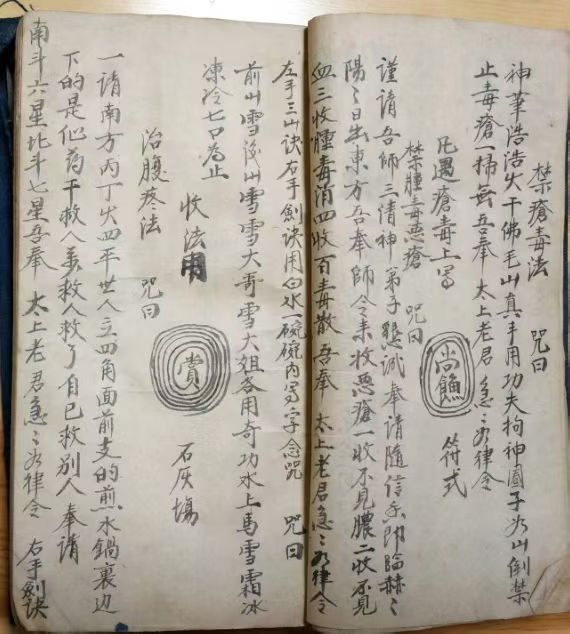 禁瘡毒法　咒曰
神筆浩浩火千佛毛山真手用功夫拘神圓子如山倒禁
止毒瘡一掃無吾奉太上老君急〻如律令
凡遇瘡毒上写
尚鱼
符式
禁腫毒惡瘡　咒曰
謹請吾師三請神弟子懇誠奉請隨信香附陥赫〻
陽〻日出東方吾奉師令来收惡瘡一收不見膿二收不見
血三收腫毒消四收百毒散吾奉太上老君急〻如律令
左手三山訣右手劍訣用白水一碗碗内写字念咒　咒曰
前山雪後山雪雪大哥雪大姐各用奇功水上馬雪霜冰
凍冷七口為止
收法用
賞
石灰塲
治腹疼法　咒曰
一請南方丙丁火四平世人立四角面前支的煎水鍋裏边
下的是他药干救人羕救人救了自已救别人奉請
南斗六星北斗七星吾奉太上老君急〻如律令　右手劍訣